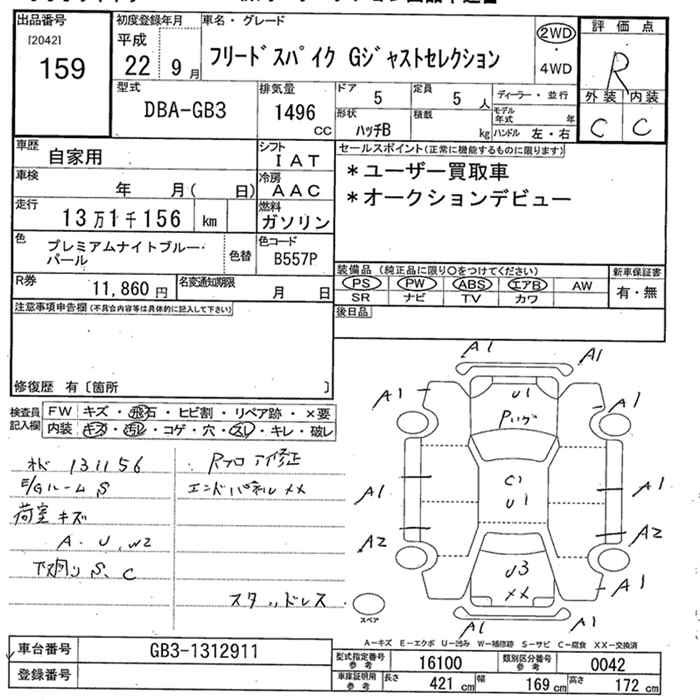 出品番号
[2042]
159
初度登録年月
平成
22 9月
車名・グレード
フリードスパイク Gジャストセレクション
2WD
・
4WD
評価点
R
外装 内装
C C
型式
DBA-GB3
排気量
1496
CC
ドア
5
定員
5 人
ディーラー・並行
形状
ハッチB
積載
kg
モデル年式 年
ハンドル 左・右
車歴
自家用
シフト
IAT
車検
年 月( 日)
冷房
AAC
走行
13万1千156 km
燃料
ガソリン
色
プレミアムナイトブルー・
パール
色替
色コード
B557P
R券
11,860 円
名変通知期限
月 日
セールスポイント(正常に機能するものに限ります)
*ユーザー買取車
*オークションデビュー
装備品(純正品に限り○をつけてください)
PS PW ABS エアB AW
SR ナビ TV カワ
新車保証書
有・無
後日品
注意事項申告欄(不具合内容等は具体的に記入して下さい)
修復歴 有〔箇所 〕
検査員
記入欄
FW キズ・飛石・ヒビ割・リペア跡・×要
内装 キズ・汚レ・コゲ・穴・スレ・キレ・破レ
131156
E/Gルーム S
荷室 キズ
A・U,W2
下廻り S、C
修正
エンドパネルXX
スタッドレス
A1 A1
A1 U1 A1
C1
U1
A1 A1
A2 A2
U3
XX
A1
A1 A1
スペア
A-キズ E-エクボ U-凹み W-補修跡 S-サビ C-腐食 XX-交換済
車台番号
GB3-1312911
登録番号
型式指定番号
参考
16100
類別区分番号
参考
0042
車庫証明用
参考
長さ 421 cm 幅 169 cm 高さ 172 cm